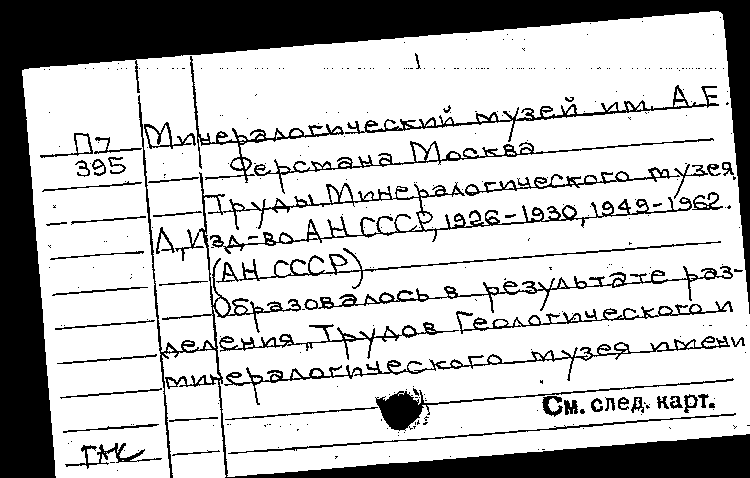 П7
395
Минералогический музей им. А.Е.
Ферсмана Москва
Труды Минералогического музея,
Л., Изд-во АН СССР, 1926-1930, 1949-1962.
(АН СССР)
Образовалось в результате раз-
деления „Трудов Геологического и
минералогического музея имени
См. след. карт.
ГАК